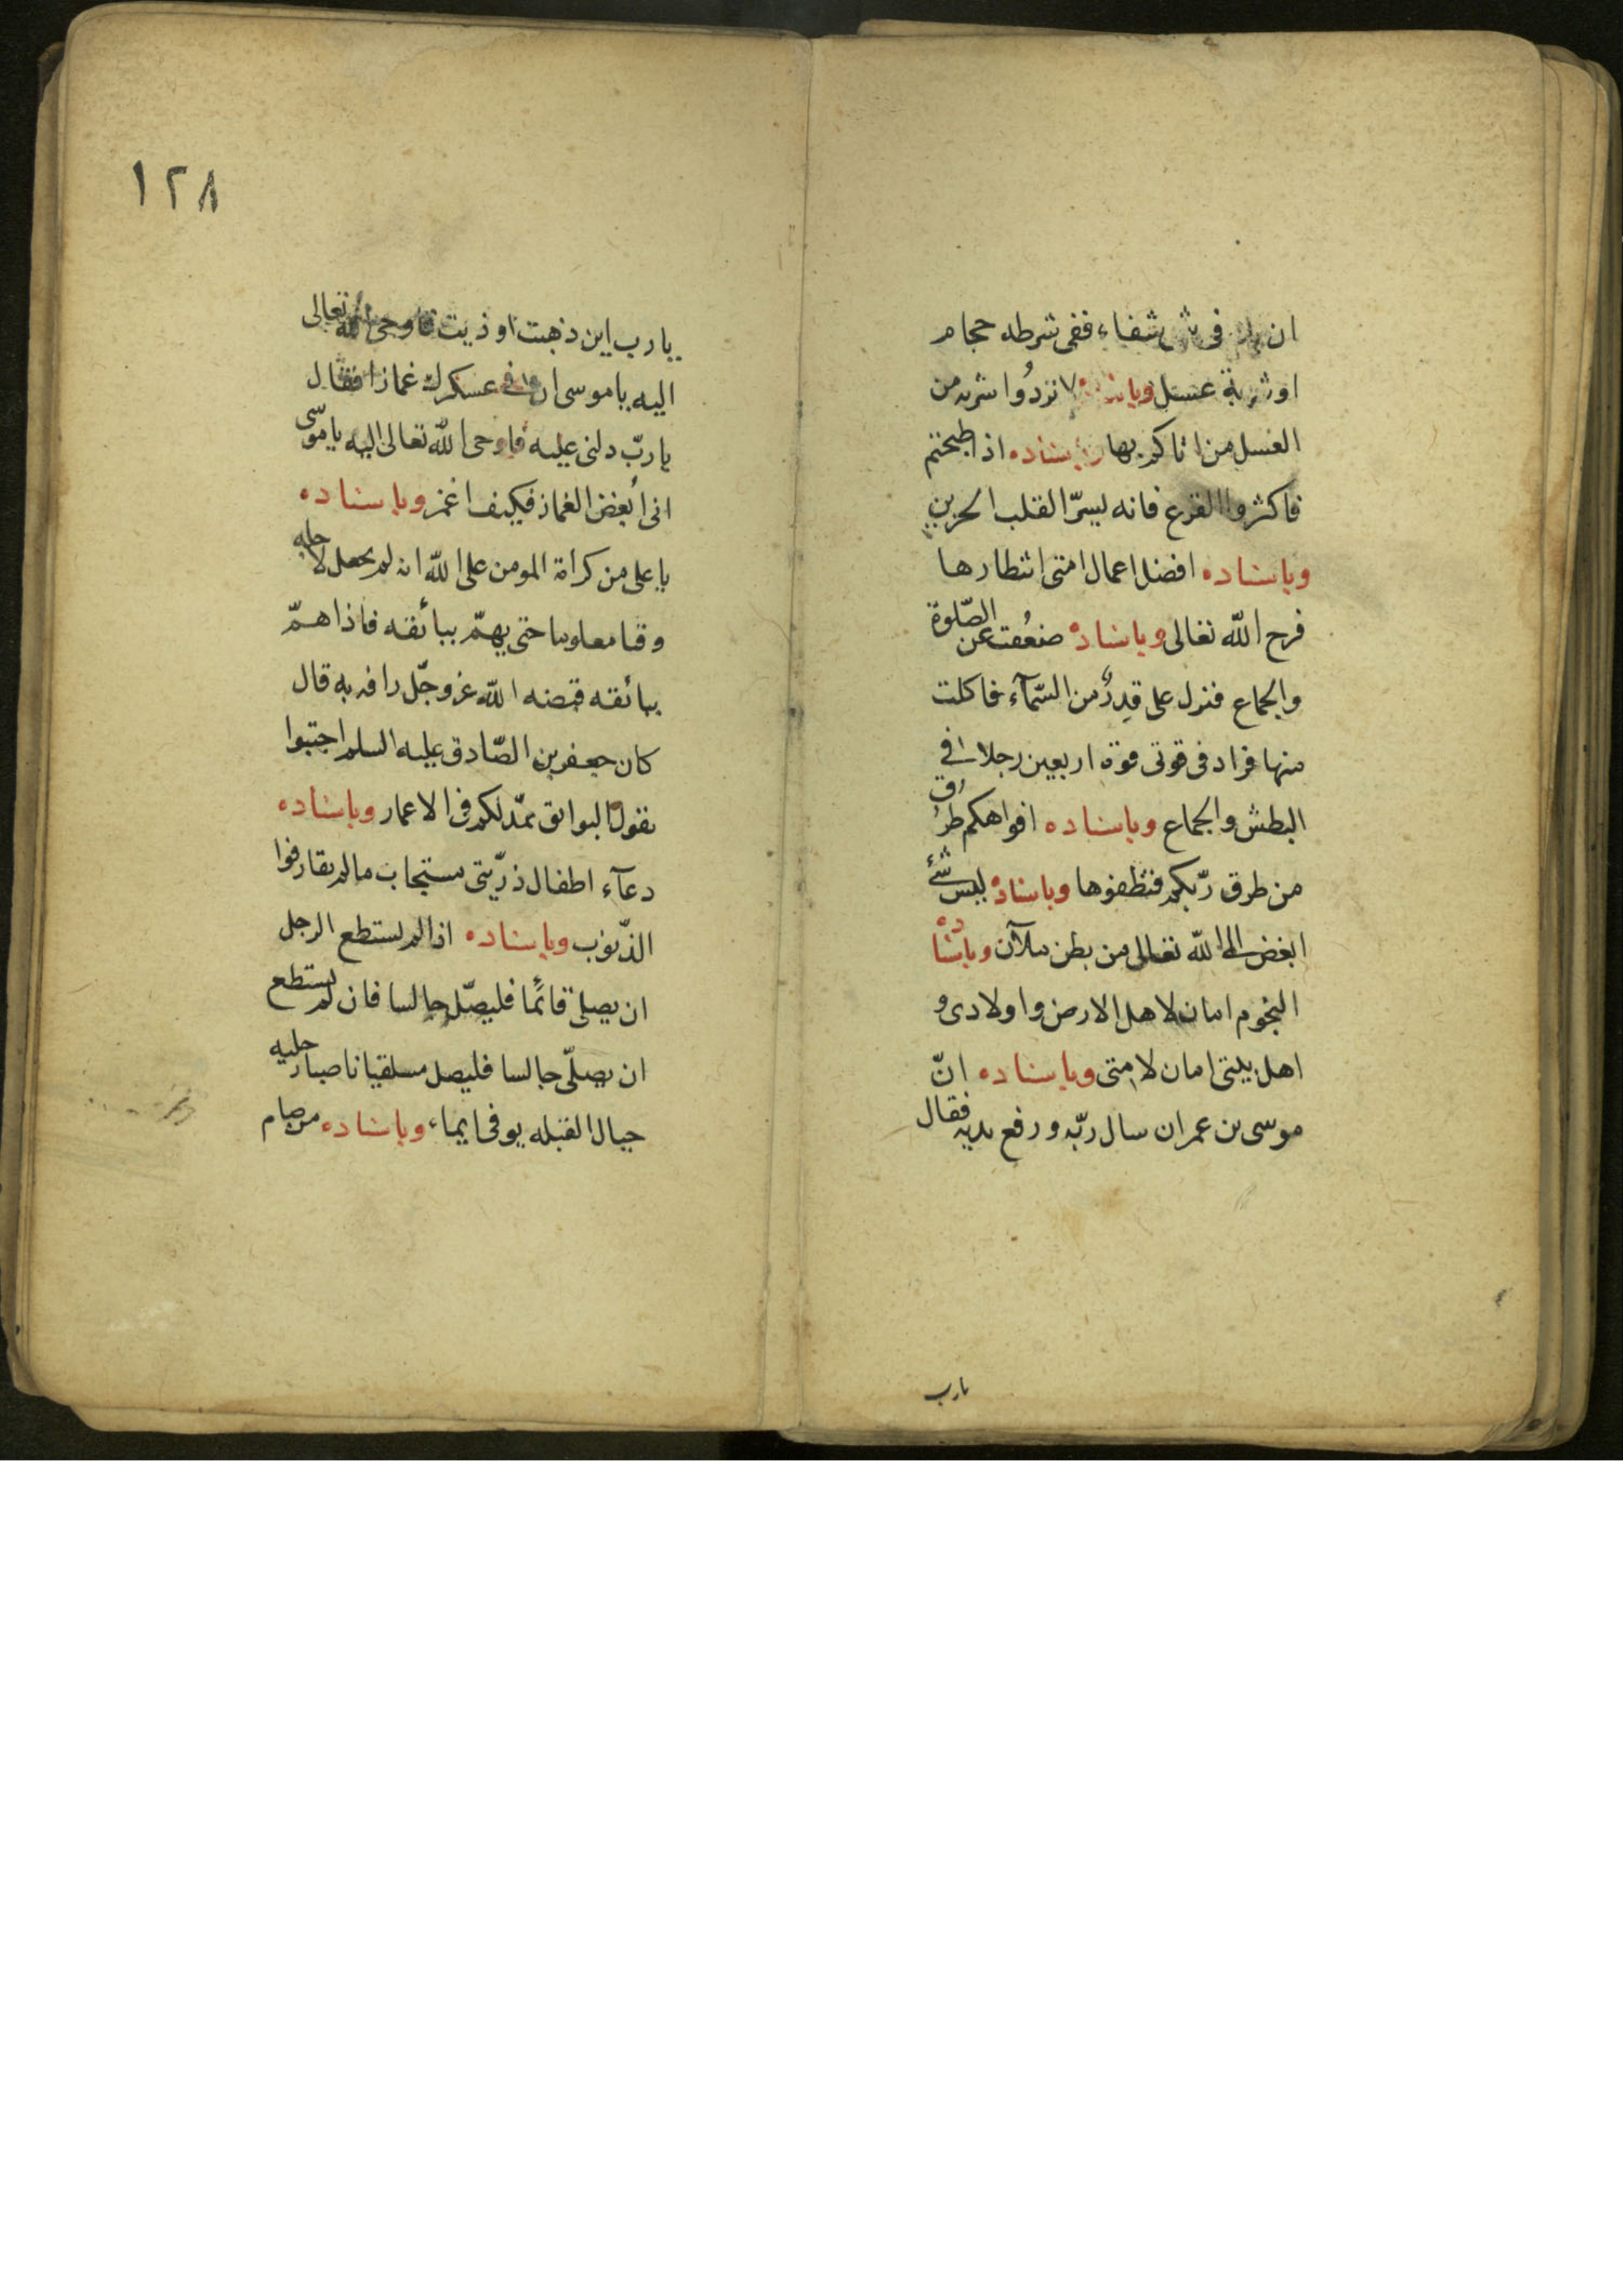 ان يك فى شئ شفاء ففى شرطه حجام
او شربة عسل وباسناده لا تردوا شربه من
العسل من اتاكم بها وباسناده اذا طبختم
فاكثروا القرع فانه ليسرّ القلب الحزين
وباسناده افضل اعمال امتى انتظارها
فرج الله تعالى وباسناده ضعُفت عن الصّلوة
والجماع فنزل على قِدرٌ من السّمآء فاكلت
منها فزاد فى قوتى قوة اربعين رجلا فى
البطش والجماع وباسناده افواهكم طرُق
من طرق ربّكم فنظفوها وباسناده ليس شئ
ابغض الى الله تعالى من بطن ملآن وباسناده
النجوم امان لاهل الارض واولادى و
اهل بيتى امان لامتى وباسناده انّ
موسى بن عمران سال ربّه ورفع يديه فقال
يارب
١٢٨
يارب اين ذهبت اوذيت فاوحى الله تعالى
اليه ياموسى ان فى عسكرك غمازا فقال
ياربّ دلنى عليه فاوحى الله تعالى اليه ياموسى
انى أبغض الغماز فكيف اغمز وباسناده
ياعلى من كرامة المومن على الله انه لم يجعل لاجله
وقتا معلوما حتى يهمّ ببائقه فاذا همّ
ببائقه قبضه الله عزوجلّ رافه به قال
كان جعفر بن الصّادق عليه السلم اجتنبوا
يقول البوائق يمدّ لكم فى الاعمار وباسناده
دعآء اطفال ذرّيتى مستجاب مالم يقارفوا
الذّنوب وباسناده اذا لم يستطع الرجل
ان يصلى قائمًا فليصّل جالسا فان لم يستطع
ان يصلّى جالسا فليصل مسلقيا ناصبا رجليه
حيال القبله يوفى ايماء وباسناده من صام